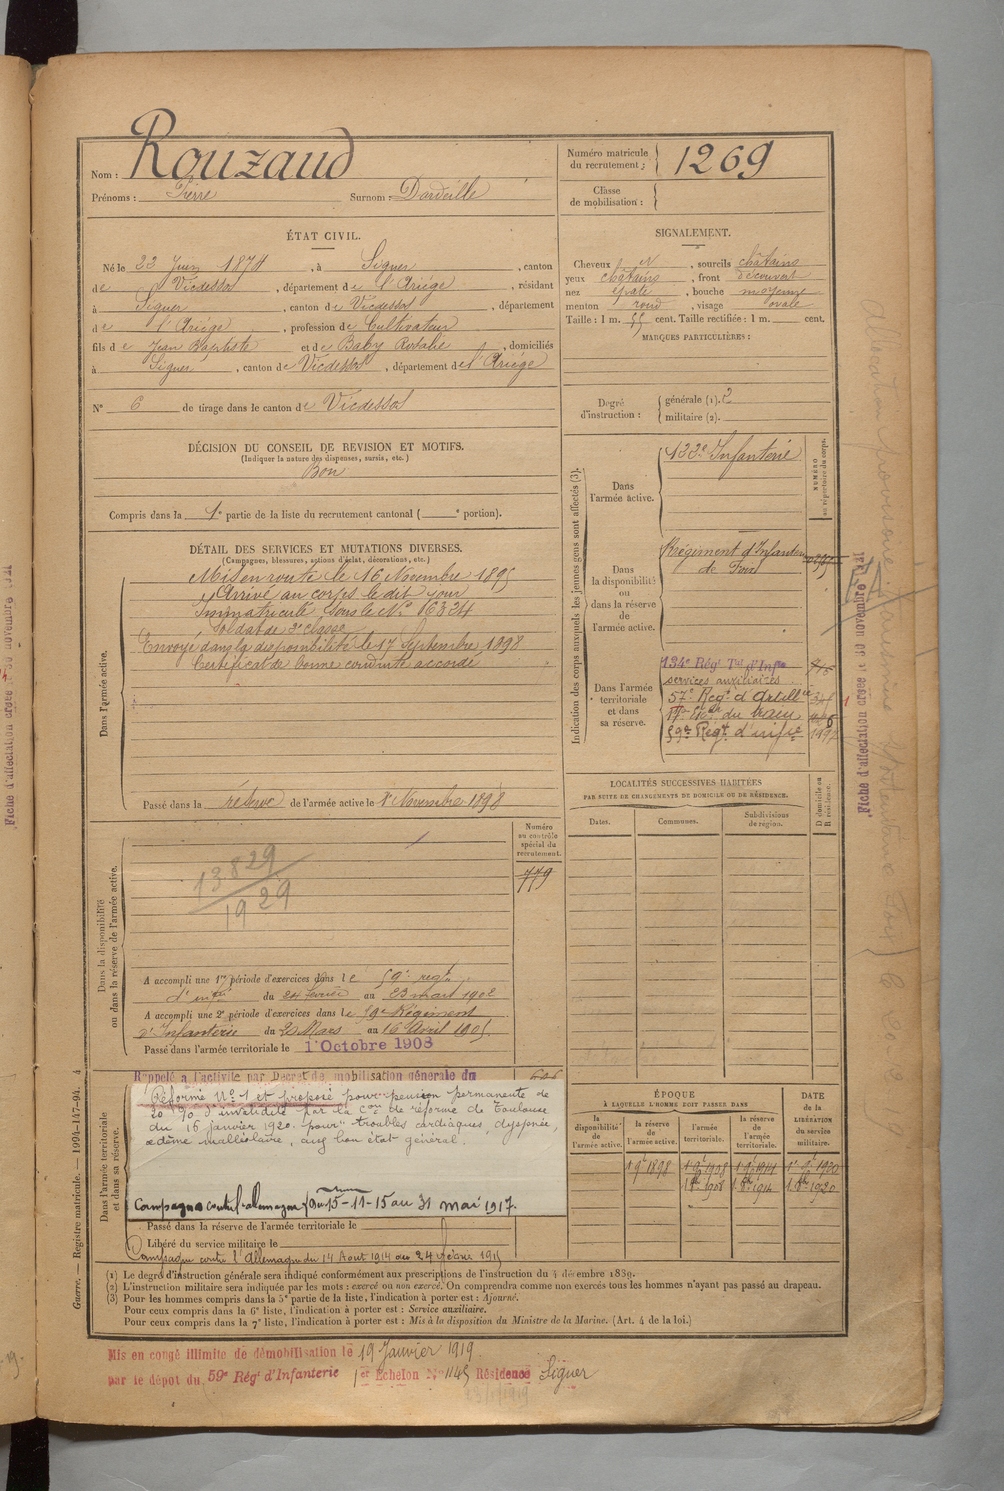 Nom : Rouzaud
Prénoms : Pierre Surnom : Dardeille
Numéro matricule du recrutement : 1269
Classe de mobilisation :
ÉTAT CIVIL.
Né le 22 Juin 1874, à Siguer, canton
de Vicdessos, département de l'Ariège, résidant
à Siguer, canton de Vicdessos, département
de l'Ariège, profession de Cultivateur
fils de Jean Baptiste et de Baby Rosalie, domiciliés
à Siguer, canton de Vicdessos, département de l'Ariège
N° 6 de tirage dans le canton de Vicdessos
SIGNALEMENT.
Cheveux N, sourcils châtains
yeux châtains, front découvert
nez épaté, bouche moyenne
menton rond, visage ovale
Taille : 1 m. 55 cent. Taille rectifiée : 1 m. cent.
MARQUES PARTICULIÈRES :
Degré d'instruction : générale (1). 2
militaire (2).
DÉCISION DU CONSEIL DE REVISION ET MOTIFS.
(Indiquer la nature des dispenses, sursis, etc.)
Bon
Compris dans la 1e partie de la liste du recrutement cantonal ( e portion).
DÉTAIL DES SERVICES ET MUTATIONS DIVERSES.
(Campagnes, blessures, actions d'éclat, décorations, etc.)
Dans l'armée active.
Mis en route le 16 Novembre 1895
Arrivé au corps le dit jour
Immatriculé sous le N° 6334
Soldat de 2e classe
Envoyé dans la disponibilité le 17 Septembre 1898
Certificat de bonne conduite accordé
Passé dans la réserve de l'armée active le 1er Novembre 1898
Indication des corps auxquels les jeunes gens sont affectés (3).
NUMÉRO au répertoire du corps.
Dans l'armée active.
122e Infanterie
Dans la disponibilité ou dans la réserve de l'armée active.
Régiment d'Infanterie
de Foix
Dans l'armée territoriale et dans sa réserve.
134e Régt Tal d'Infie
services auxiliaires
57e Regt d'Artillie
du train
59e Regt d'infie
LOCALITÉS SUCCESSIVES HABITÉES
PAR SUITE DE CHANGEMENTS DE DOMICILE OU DE RÉSIDENCE.
Dates. Communes. Subdivisions de région. D domicile ou R résidence.
Dans la disponibilité ou dans la réserve de l'armée active.
Numéro au contrôle spécial du recrutement.
779
13829
1929
A accompli une 1re période d'exercices dans le 59e regt
d'infie du 24 février au 23 mars 1902
A accompli une 2e période d'exercices dans le 59e Régiment
d'Infanterie du 20 Mars au 16 Avril 1905
Passé dans l'armée territoriale le 1er Octobre 1908
Dans l'armée territoriale et dans sa réserve.
Rappelé à l'activité par Decret de mobilisation générale du
Réformé N° 1 et proposé pour pension permanente de
20 % d'invalidité par la con de réforme de Toulouse
du 16 janvier 1920 pour "troubles cardiaques, dyspnée,
œdème malléolaire, assez bon état général.
Campagne contre l'allemagne du 15-11-15 au 31 mai 1917.
Passé dans la réserve de l'armée territoriale le
Libéré du service militaire le
Campagne contre l'Allemagne du 14 Aout 1914 au 24 février 1915
ÉPOQUE
À LAQUELLE L'HOMME DOIT PASSER DANS
DATE de la LIBÉRATION du service militaire.
la disponibilité de l'armée active. la réserve de l'armée active. l'armée territoriale. la réserve de l'armée territoriale.
1 9e 1898 1 9e 1908 1 9e 1914 1er 9e 1920
1 8e 1908 1 8e 1914 1 8e 1920
(1) Le degré d'instruction générale sera indiqué conformément aux prescriptions de l'instruction du 4 décembre 1889.
(2) L'instruction militaire sera indiquée par les mots : exercé ou non exercé. On comprendra comme non exercés tous les hommes n'ayant pas passé au drapeau.
(3) Pour les hommes compris dans la 5e partie de la liste, l'indication à porter est : Ajourné.
Pour ceux compris dans la 6e liste, l'indication à porter est : Service auxiliaire.
Pour ceux compris dans la 7e liste, l'indication à porter est : Mis à la disposition du Ministre de la Marine. (Art. 4 de la loi.)
Guerre. — Registre matricule. — 1994-147-94. 4
Mis en congé illimité de démobilisation le 19 Janvier 1919.
par le dépôt du 59e Régt d'Infanterie 1er Echelon N° 1145 Résidence Siguer
Fiche d'affectation créée le 30 novembre